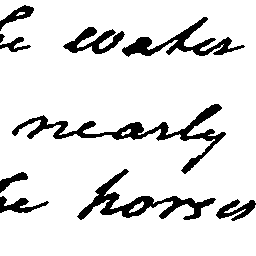 he water
nearly
he horses